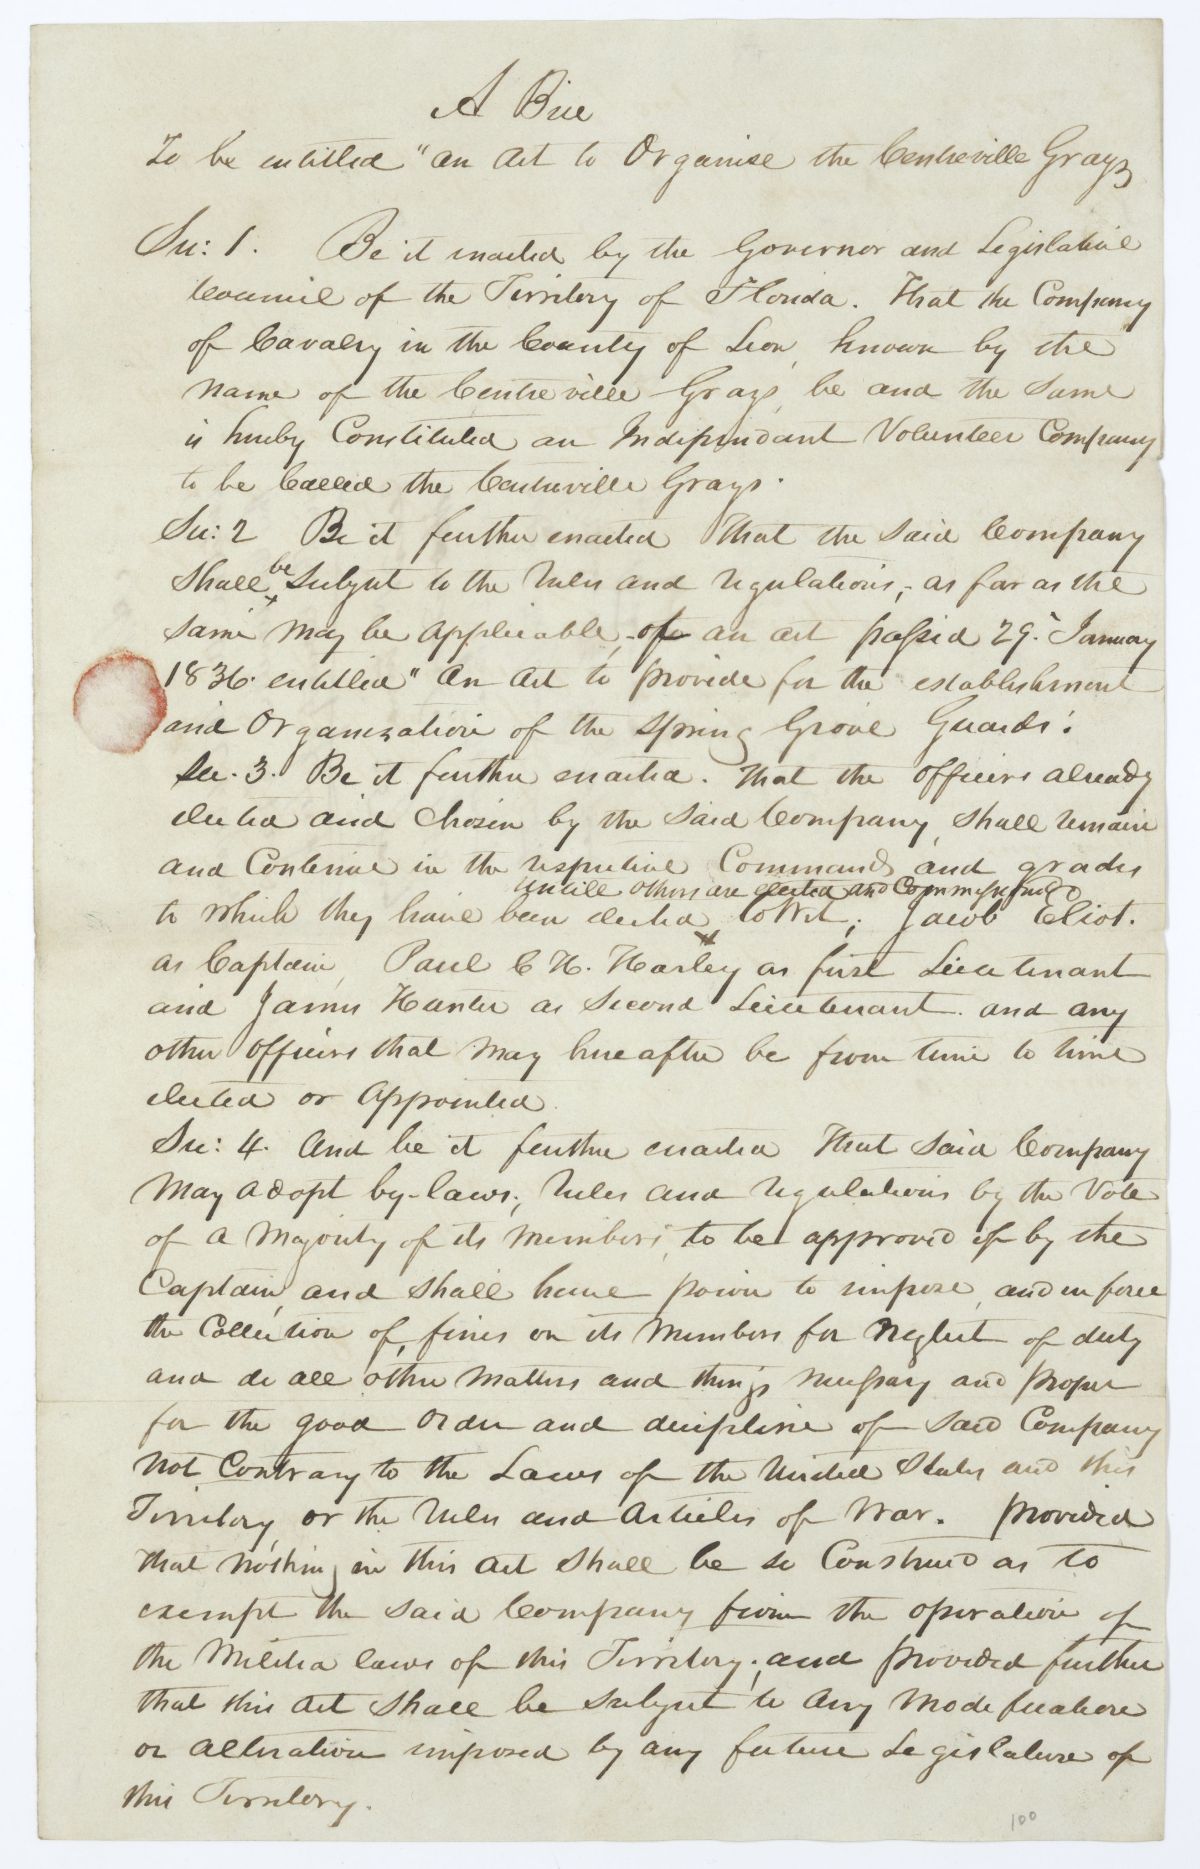 A Bill
To be entitled "An Act to Organise the Centreville Grays
Sec: 1. Be it enacted by the Governor and Legislative
Council of the Territory of Florida. That the Company
of Cavalry in the County of Leon, known by the
name of the Centreville Grays, be and the same
is hereby Constituted an Independant Volunteer Company
to be Called the Centreville Grays.
Sec: 2 Be it further enacted That the said Company
Shall be Subject to the rules and regulations, as far as the
same may be applicable, of an act passed 29th January
1836. entitled "An Act to provide for the establishment
and Organization of the Spring Grove Guards".
Sec. 3. Be it further enacted. That the officers already
elected and Chosen by the said Company, shall remain
and Continue in the respective Commands and grades
untill others are elected and Commissioned
to which they have been elected, to Wit; Jacob Eliot.
as Captain, Paul C H. Harley as first Lieutenant
and James Hunter as Second Lieutenant. and any
other officers that may hereafter be from time to time
elected or Appointed.
Sec: 4. And be it further enacted That said Company
May adopt by-laws, rules and regulations by the Vote
of a Majority of its Members, to be approved of by the
Captain, and shall have power to impose, and enforce
the Collection of, fines on its Members for neglect of duty
and do all other matters and things necessary and proper
for the good order and decipline of said Company
Not Contrary to the Laws of the United States and this
Territory, or the rules and Articles of War. Provided
that nothing in this act shall be so Construed as to
exempt the said Company from the operation of
the Militia laws of this Territory; and provided further
that this Act shall be subject to any modification
or alteration imposed by any future Legislature of
this Territory.
100